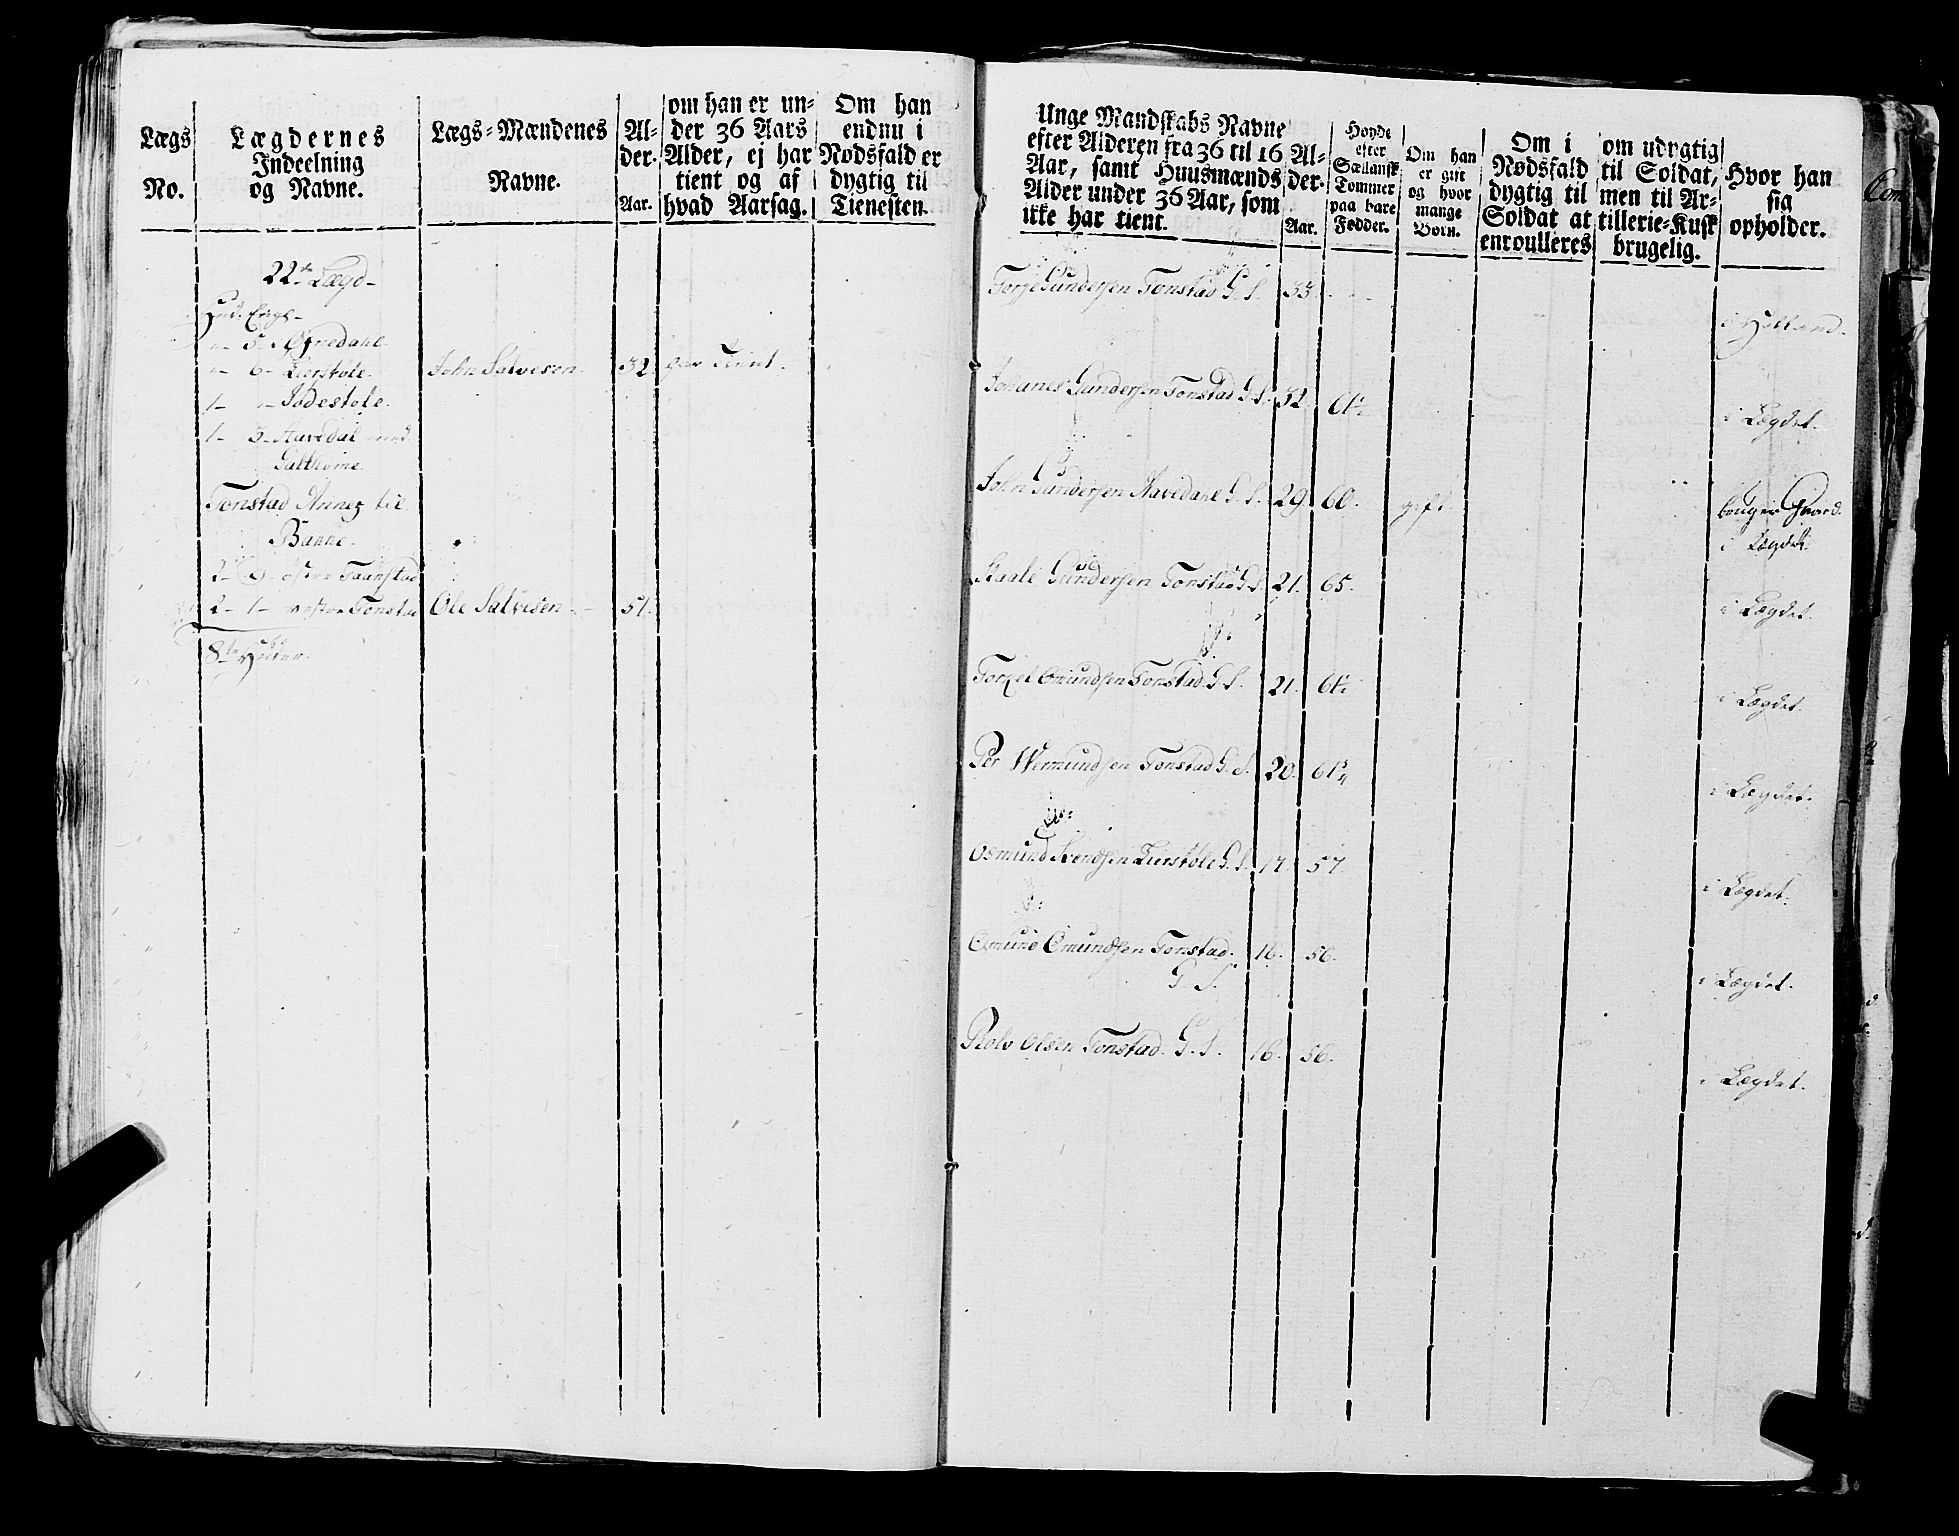 Lægs
No.
Lægdernes
Indeelning
og Navne.
Lægs-Mændenes
Navne.
Al-
der.
Aar.
om han er un-
der 36 Aars
Alder, ej har
tient og af
hvad Aarsag.
Om han
endnu i
Nødsfald er
dygtig til
Tienesten.
22de Lægd-
5. Øyredahl
6- Lierstøle.
John Salvesen. 32. har tient.
1- Josdestøle.
1- 3- Aavedal med
Tonstad Annex til
Banne.
2- Taanstad
2- 1- Tonstad
Ole Salvesen - 51.
8te
Unge Mandskabs Navne
efter Alderen fra 36 til 16
Aar, samt Huusmænds
Alder under 36 Aar, som
ikke har tient.
Al-
der.
Aar.
Høyde
efter
Sællansk
Tommer
paa bare
Fødder.
Om han
er gift
og hvor
mange
Børn.
Om i
Nødsfald
dygtig til
Soldat at
enroulleres
om udygtig
til Soldat,
men til Ar-
tillerie-Kusk
brugelig.
Hvor han
sig
opholder.
Torje Gundersen Tonstad G. S. 33.
i Holland.
Johanes Gundersen Tonstad G. S. 32. 61½
i Lægdet.
John Gundersen Aavedahl G. S. 29. 60. gift. bruger Gaard
i Lægdet.
Staale Gundersen Tonstad G. S. 21. 65.
i Lægdet.
Torkel Omundsen Tonstad G. S. 21. 61½
i Lægdet.
Per Wermundsen Tonstad G. S. 20. 61¾
i Lægdet.
Osmund Svendsen Lierstøle G. S. 17. 57
i Lægdet.
Osmund Omundsen Tonstad. 16. 56.
G. S.
i Lægdet.
Rolv Olsen Tonstad. G. S. 16. 56.
i Lægdet.